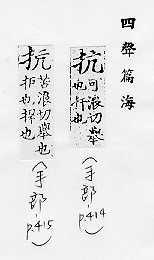 四聲篇海
抗
可浪切舉
也扞也
(手部p.414)
抗
苦浪切舉也
拒也
(手部p.415)